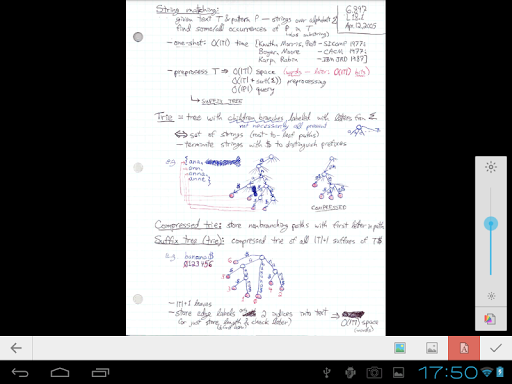 String matching:
given text T & pattern P — strings over alphabet Σ
find some/all occurrences of P in T
(as substring)
6.897
Apr. 12, 2005
- one-shot: O(|T|) time [Knuth, Morris, Pratt - SICOMP 1977;
Boyer, Moore - CACM 1977;
Karp, Rabin - IBM JRD 1987]
- preprocess T ⇒ O(|T|) space
O(|T| + sort(Σ)) preprocessing
O(|P|) query
↳ SUFFIX TREE
Trie = tree with children branches labeled with letters from Σ
not necessarily all present
⇔ set of strings (root-to-leaf paths)
- terminate strings with $ to distinguish prefixes
e.g. {ana,
ann,
anna,
anne}
COMPRESSED
Compressed trie: store nonbranching paths with first letter
Suffix tree (trie): compressed trie of all |T|+1 suffixes of T$
e.g. banana$
0123456
- |T|+1 leaves
- store edge labels as 2 indices into text → O(|T|) space
(or just store length & check later) (words)
17:50